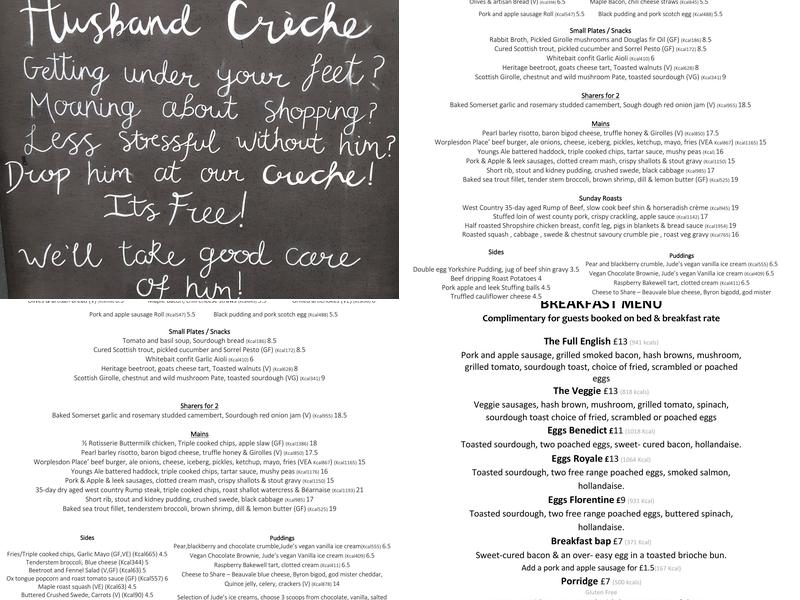 Husband Crèche
Getting under your feet?
Moaning about shopping?
Less stressful without him?
Drop him at our creche!
Its Free!
We'll take good care
of him!
Olives & artisan Bread (V) 6.5
Maple Bacon, chili cheese straws (Kcal645) 5.5
Pork and apple sausage Roll (Kcal547) 5.5
Black pudding and pork scotch egg (Kcal488) 5.5
Small Plates / Snacks
Rabbit Broth, Pickled Girolle mushrooms and Douglas fir Oil (GF) (Kcal186) 8.5
Cured Scottish trout, pickled cucumber and Sorrel Pesto (GF) (Kcal172) 8.5
Whitebait confit Garlic Aioli (Kcal410) 6
Heritage beetroot, goats cheese tart, Toasted walnuts (V) (Kcal628) 8
Scottish Girolle, chestnut and wild mushroom Pate, toasted sourdough (VG) (Kcal341) 9
Sharers for 2
Baked Somerset garlic and rosemary studded camembert, Sough dough red onion jam (V) (Kcal955) 18.5
Mains
Pearl barley risotto, baron bigod cheese, truffle honey & Girolles (V) (Kcal850) 17.5
Worplesdon Place' beef burger, ale onions, cheese, iceberg, pickles, ketchup, mayo, fries (VEA Kcal867) (Kcal1165) 15
Youngs Ale battered haddock, triple cooked chips, tartar sauce, mushy peas (Kcal) 16
Pork & Apple & leek sausages, clotted cream mash, crispy shallots & stout gravy (Kcal1150) 15
Short rib, stout and kidney pudding, crushed swede, black cabbage (Kcal985) 17
Baked sea trout fillet, tender stem broccoli, brown shrimp, dill & lemon butter (GF) (Kcal525) 19
Sunday Roasts
West Country 35-day aged Rump of Beef, slow cook beef shin & horseradish crème (Kcal945) 19
Stuffed loin of west county pork, crispy crackling, apple sauce (Kcal1142) 17
Half roasted Shropshire chicken breast, confit leg, pigs in blankets & bread sauce (Kcal1954) 19
Roasted squash , cabbage , swede & chestnut savoury crumble pie , roast veg gravy (Kcal765) 16
Sides
Double egg Yorkshire Pudding, jug of beef shin gravy 3.5
Beef dripping Roast Potatoes 4
Pork apple and leek Stuffing balls 4.5
Truffled cauliflower cheese 4.5
Puddings
Pear and blackberry crumble, Jude's vegan vanilla ice cream (Kcal555) 6.5
Vegan Chocolate Brownie, Jude's vegan Vanilla ice cream (Kcal409) 6.5
Raspberry Bakewell tart, clotted cream (Kcal411) 6.5
Cheese to Share – Beauvale blue cheese, Byron bigodd, god mister
Pork and apple sausage Roll (Kcal547) 5.5
Black pudding and pork scotch egg (Kcal488) 5.5
Small Plates / Snacks
Tomato and basil soup, Sourdough bread (Kcal186) 8.5
Cured Scottish trout, pickled cucumber and Sorrel Pesto (GF) (Kcal172) 8.5
Whitebait confit Garlic Aioli (Kcal410) 6
Heritage beetroot, goats cheese tart, Toasted walnuts (V) (Kcal628) 8
Scottish Girolle, chestnut and wild mushroom Pate, toasted sourdough (VG) (Kcal341) 9
Sharers for 2
Baked Somerset garlic and rosemary studded camembert, Sourdough red onion jam (V) (Kcal955) 18.5
Mains
½ Rotisserie Buttermilk chicken, Triple cooked chips, apple slaw (GF) (Kcal1386) 18
Pearl barley risotto, baron bigod cheese, truffle honey & Girolles (V) (Kcal850) 17.5
Worplesdon Place' beef burger, ale onions, cheese, iceberg, pickles, ketchup, mayo, fries (VEA Kcal867) (Kcal1165) 15
Youngs Ale battered haddock, triple cooked chips, tartar sauce, mushy peas (Kcal1176) 16
Pork & Apple & leek sausages, clotted cream mash, crispy shallots & stout gravy (Kcal1150) 15
35-day dry aged west country Rump steak, triple cooked chips, roast shallot watercress & Béarnaise (Kcal1193) 21
Short rib, stout and kidney pudding, crushed swede, black cabbage (Kcal985) 17
Baked sea trout fillet, tenderstem broccoli, brown shrimp, dill & lemon butter (GF) (Kcal525) 19
Sides
Fries/Triple cooked chips, Garlic Mayo (GF,VE) (Kcal665) 4.5
Tenderstem broccoli, Blue cheese (Kcal344) 5
Beetroot and Fennel Salad (V,GF) (Kcal63) 5
Ox tongue popcorn and roast tomato sauce (GF) (Kcal557) 6
Maple roast squash (VE) (Kcal63) 4.5
Buttered Crushed Swede, Carrots (V) (Kcal90) 4.5
Puddings
Pear,blackberry and chocolate crumble,Jude's vegan vanilla ice cream(Kcal555) 6.5
Vegan Chocolate Brownie, Jude's vegan Vanilla ice cream (Kcal409) 6.5
Raspberry Bakewell tart, clotted cream (Kcal411) 6.5
Cheese to Share – Beauvale blue cheese, Byron bigod, god mister cheddar,
Quince jelly, celery, crackers (V) (Kcal878) 14
Selection of Jude's ice creams, choose 3 scoops from chocolate, vanilla, salted
BREAKFAST MENU
Complimentary for guests booked on bed & breakfast rate
The Full English £13 (941 kcals)
Pork and apple sausage, grilled smoked bacon, hash browns, mushroom,
grilled tomato, sourdough toast, choice of fried, scrambled or poached
eggs
The Veggie £13 (818 kcals)
Veggie sausages, hash brown, mushroom, grilled tomato, spinach,
sourdough toast choice of fried, scrambled or poached eggs
Eggs Benedict £11 (1018 Kcal)
Toasted sourdough, two poached eggs, sweet- cured bacon, hollandaise.
Eggs Royale £13 (1064 Kcal)
Toasted sourdough, two free range poached eggs, smoked salmon,
hollandaise.
Eggs Florentine £9 (931 Kcal)
Toasted sourdough, two free range poached eggs, buttered spinach,
hollandaise.
Breakfast bap £7 (371 Kcal)
Sweet-cured bacon & an over- easy egg in a toasted brioche bun.
Add a pork and apple sausage for £1.5(167 Kcal)
Porridge £7 (500 kcals)
Gluten Free